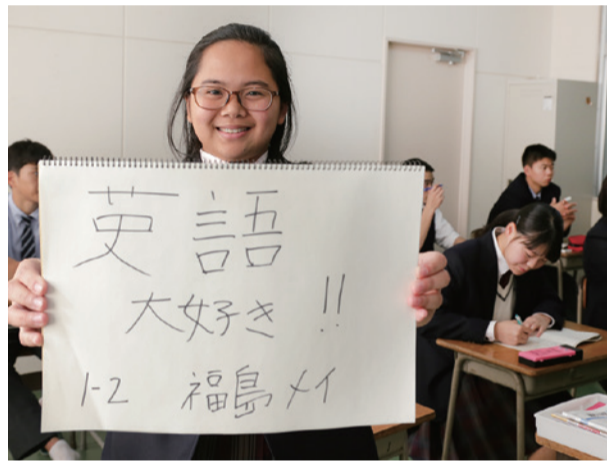 英語
大好き!!
1-2 福島メイ